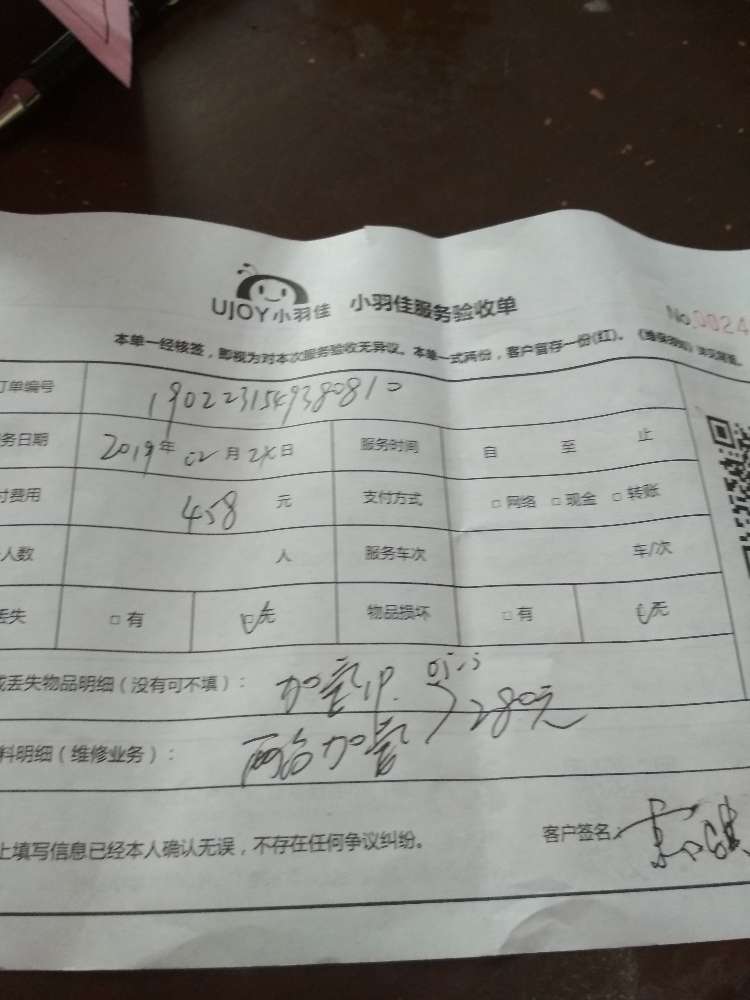 UJOY小羽佳 小羽佳服务验收单
No.0024
本单一经核签，即视为对本次服务验收无异议。本单一式两份，客户留存一份(红)。
订单编号 1902231549380810
服务日期 2019年02月2 日 服务时间 自 至 止
付费用 458 元 支付方式 □网络 □现金 □转账
人数 人 服务车次 车/次
丢失 □有 □无 物品损坏 □有 □无
或丢失物品明细（没有可不填）： 加氢1P.
料明细（维修业务）： 两台加氢 280元
上填写信息已经本人确认无误，不存在任何争议纠纷。 客户签名